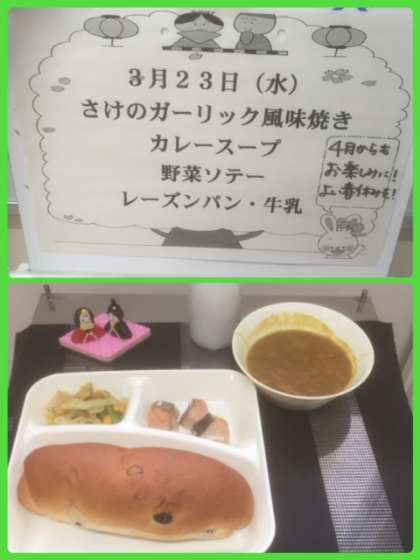 3月23日（水）
さけのガーリック風味焼き
カレースープ
野菜ソテー
レーズンパン・牛乳
4月からも
お楽しみに！
よい春休みを！